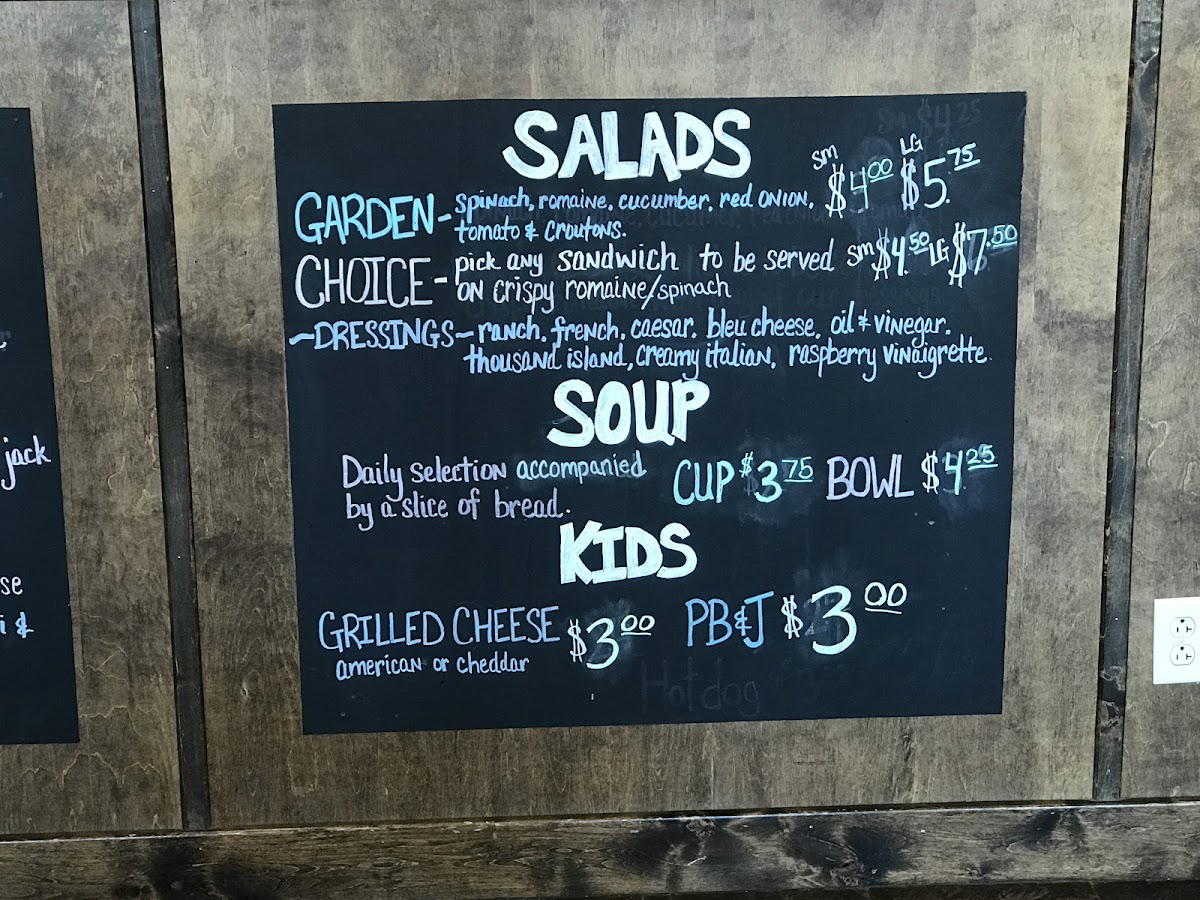 SALADS
SM LG
GARDEN - spinach, romaine, cucumber, red onion, $4.00 $5.75
tomato & croutons.
CHOICE - pick any sandwich to be served SM $4.50 LG $7.50
on crispy romaine/spinach
~DRESSINGS - ranch, french, caesar, bleu cheese, oil & vinegar,
thousand island, creamy italian, raspberry vinaigrette
SOUP
Daily selection accompanied CUP $3.75 BOWL $4.25
by a slice of bread.
KIDS
GRILLED CHEESE $3.00 PB&J $3.00
american or cheddar
Hotdog
jack
se
i &